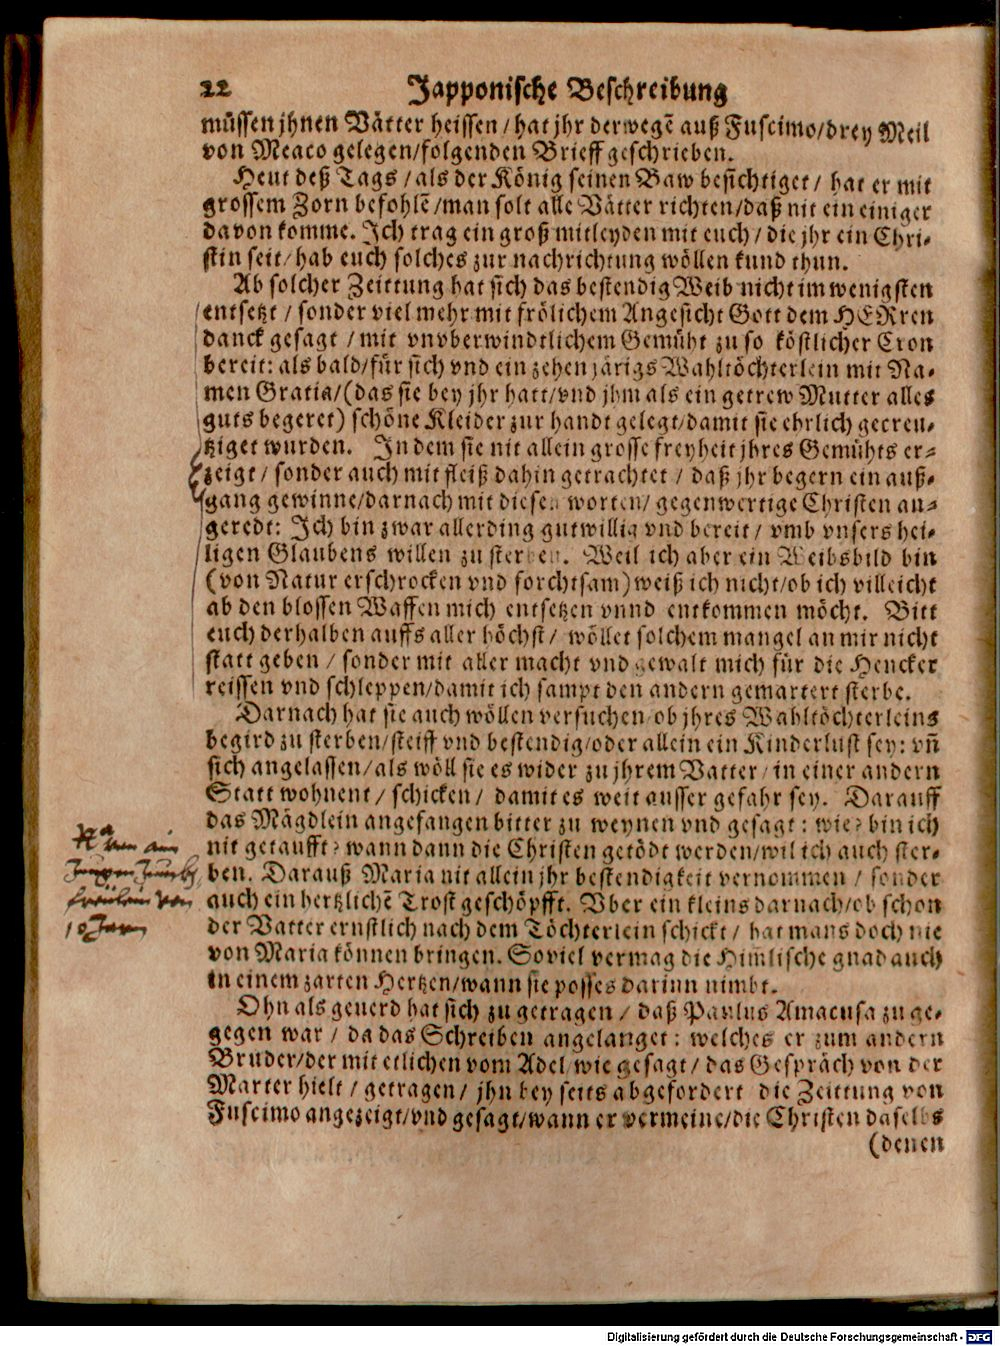 22 Japponische Beschreibung
müssen jhnen Vätter heissen / hat jhr derwegē auß Fuscimo/drey Meil
von Meaco gelegen/folgenden Brieff geschrieben.
Heut deß Tags / als der König seinen Baw besichtiget / hat er mit
grossem Zorn befohlē /man solt alle Vätter richten/daß nit ein einiger
davon komme. Ich trag ein groß mitleyden mit euch / die jhr ein Chri-
stin seit/hab euch solches zur nachrichtung wöllen kund thun.
Ab solcher Zeittung hat sich das bestendig Weib nicht im wenigsten
entsetzt / sonder viel mehr mit frölichem Angesicht Gott dem HERren
danck gesagt / mit vnvberwindtlichem Gemüht zu so köstlicher Cron
bereit: als bald/für sich vnd ein zehen järigs Wahltöchterlein mit Na-
men Gratia/(das sie bey jhr hatt/vnd jhm als ein getrew Mutter alles
guts begeret) schöne Kleider zur handt gelegt/damit sie ehrlich gecreu-
tziget wurden. In dem sie nit allein grosse freyheit jhres Gemühts er-
zeigt / sonder auch mit fleiß dahin getrachtet / daß jhr begern ein auß-
gang gewinne/darnach mit diesen worten/ gegenwertige Christen an-
geredt: Ich bin zwar allerding gutwillig vnd bereit / vmb vnsers hei-
ligen Glaubens willen zu sterben. Weil ich aber ein Weibsbild bin
(von Natur erschrocken vnd forchtsam) weiß ich nicht/ob ich villeicht
ab den blossen Waffen mich entsetzen vnnd entkommen möcht. Bitt
euch derhalben auffs aller höchst / wöllet solchem mangel an mir nicht
statt geben / sonder mit aller macht vnd gewalt mich für die Hencker
reissen vnd schleppen/damit ich sampt den andern gemartert sterbe.
Darnach hat sie auch wöllen versuchen/ob jhres Wahltöchterleins
begird zu sterben/steiff vnd bestendig/oder allein ein Kinderlust sey: vñ
sich angelassen/als wöll sie es wider zu jhrem Vatter / in einer andern
Statt wohnent / schicken / damit es weit ausser gefahr sey. Darauff
das Mägdlein angefangen bitter zu weynen vnd gesagt: wie? bin ich
nit getaufft? wann dann die Christen getödt werden/wil ich auch ster-
ben. Darauß Maria nit allein jhr bestendigkeit vernommen / sonder
auch ein hertzlichē Trost geschöpfft. Vber ein kleins darnach/ob schon
der Vatter ernstlich nach dem Töchterlein schickt / hat mans doch nie
von Maria können bringen. Soviel vermag die Him̃lische gnad auch
in einem zarten Hertzen/wann sie posses darinn nimbt.
Ohn als geuerd hat sich zu getragen / daß Paulus Amacusa zu ge-
gegen war / da das Schreiben angelanget: welches er zum andern
Bruder/der mit etlichen vom Adel/wie gesagt / das Gespräch von der
Marter hielt / getragen / jhn bey seits abgefordert die Zeittung von
Fuscimo angezeigt/vnd gesagt/wann er vermeine/die Christen daselbs
(denen
von
10 Jarn
Digitalisierung gefördert durch die Deutsche Forschungsgemeinschaft - DFG